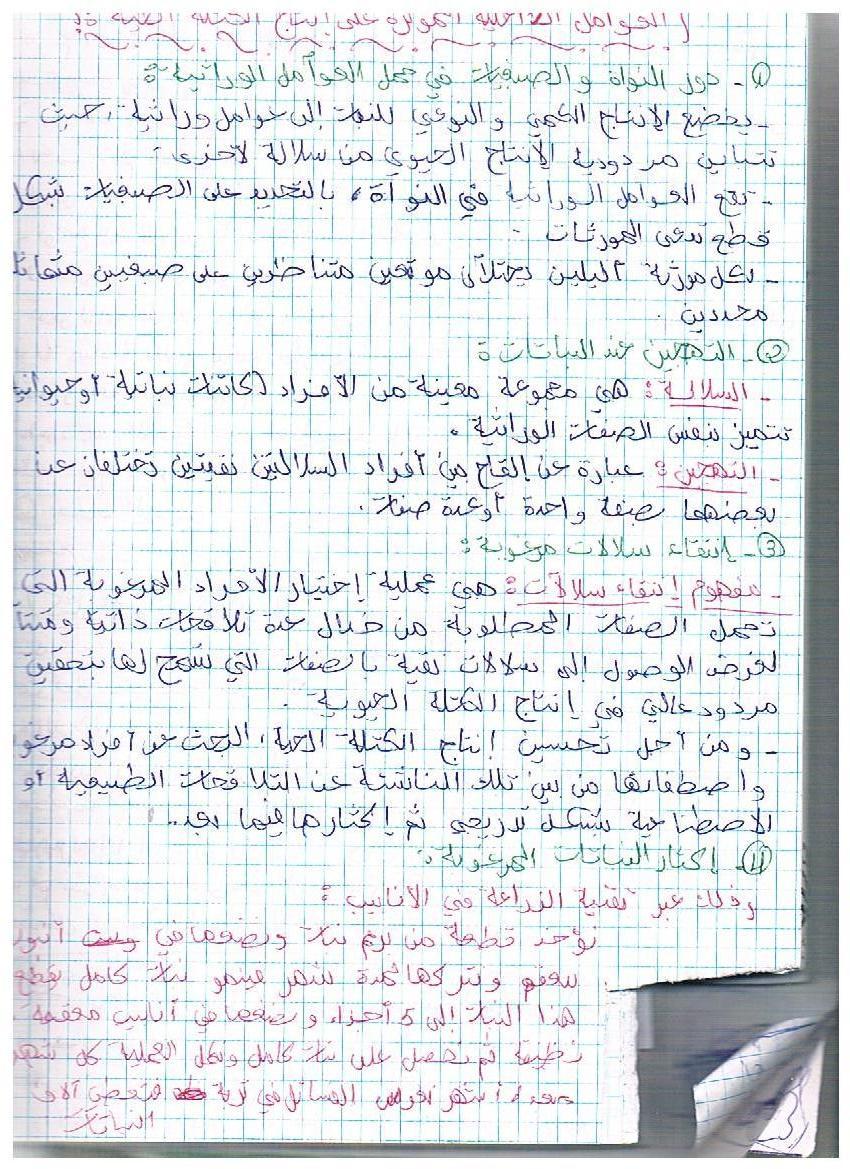 العوامل الداخلية المؤثرة على إنتاج الكتلة الحية :
1 - دور النواة والصبغيات في حمل العوامل الوراثية :
- يخضع الإنتاج الكمي والنوعي للنبات إلى عوامل وراثية، حيث
تتباين مردودية الإنتاج الحيوي من سلالة لأخرى.
- تقع العوامل الوراثية في النواة، بالتحديد على الصبغيات بشكل
قطع تدعى المورثات.
- لكل مورثة أليلين يحتلان موقعين متناظرين على صبغيين متماثل
محددين.
2 - التهجين عند النباتات :
- السلالة : هي مجموعة معينة من الأفراد (كائنات نباتية أو حيوانية
تتميز بنفس الصفات الوراثية.
- التهجين : عبارة عن إلقاح بين أفراد السلالتين نقيتين تختلفان عن
بعضهما بصفة واحدة أو عدة صفات.
3 - إنتقاء سلالات مرغوبة :
- مفهوم إنتقاء سلالات : هي عملية إختيار الأفراد المرغوبة التي
تحمل الصفات المطلوبة من خلال عدة تلاقحات ذاتية
لغرض الوصول إلى سلالات نقية بالصفات التي تسمح لها بتحقيق
مردود عالي في إنتاج الكتلة الحيوية.
- ومن أجل تحسين إنتاج الكتلة الحية، البحث عن أفراد مرغو
واصطفائها من بين تلك الناشئة عن التلاقحات الطبيعية أو
الاصطناعية بشكل تدريجي ثم إكثارها فيما بعد..
4 - إكثار النباتات المرغوبة :
وذلك عبر تقنية الزراعة في الأنابيب :
نؤخذ قطعة من برعم نبات ونضعها في أنبو
معقم ونتركها لمدة شهر فينمو نبات كامل يقطع
هذا النبات إلى 5 أجزاء ونضعها في أنابيب معقمة
نظيفة ثم نحصل على نبات كامل العملية كل شهر
أشهر نغرس الفسائل في تربة فتعطي آلاف
النباتات